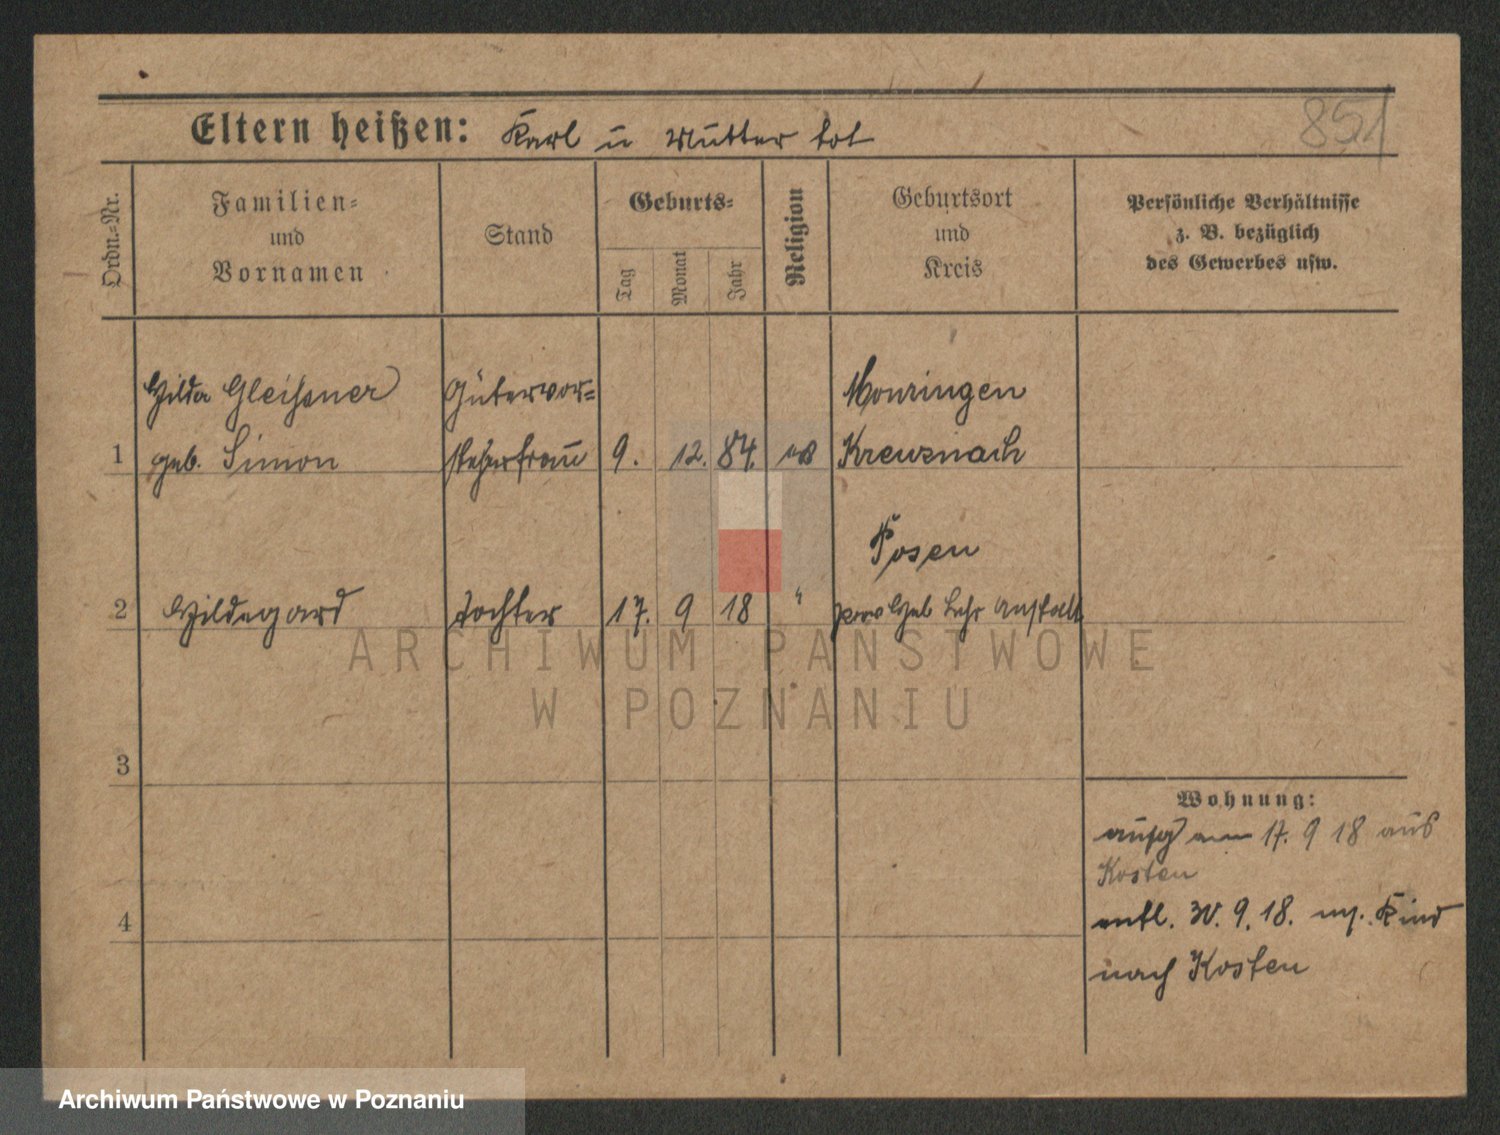 851
Eltern heißen: Karl u Mutter tot
Ordn.=Nr.
Familien=
und
Vornamen
Stand
Geburts=
Tag
Monat
Jahr
Religion
Geburtsort
und
Kreis
Persönliche Verhältnisse
z. B. bezüglich
des Gewerbes usw.
Hilda Gleissner
Gütervor=
1
geb. Simon
steherfrau
9.
12.
84.
Kreuznach
Posen
2
Hildegard
Tochter
17.
9
18
"
Heb Lehr Anstalt
3
4
Wohnung:
aufg am 17. 9 18 aus
Kosten
entl. 30. 9. 18. m. Kind
nach Kosten
ARCHIWUM PAŃSTWOWE
W POZNANIU
Archiwum Państwowe w Poznaniu